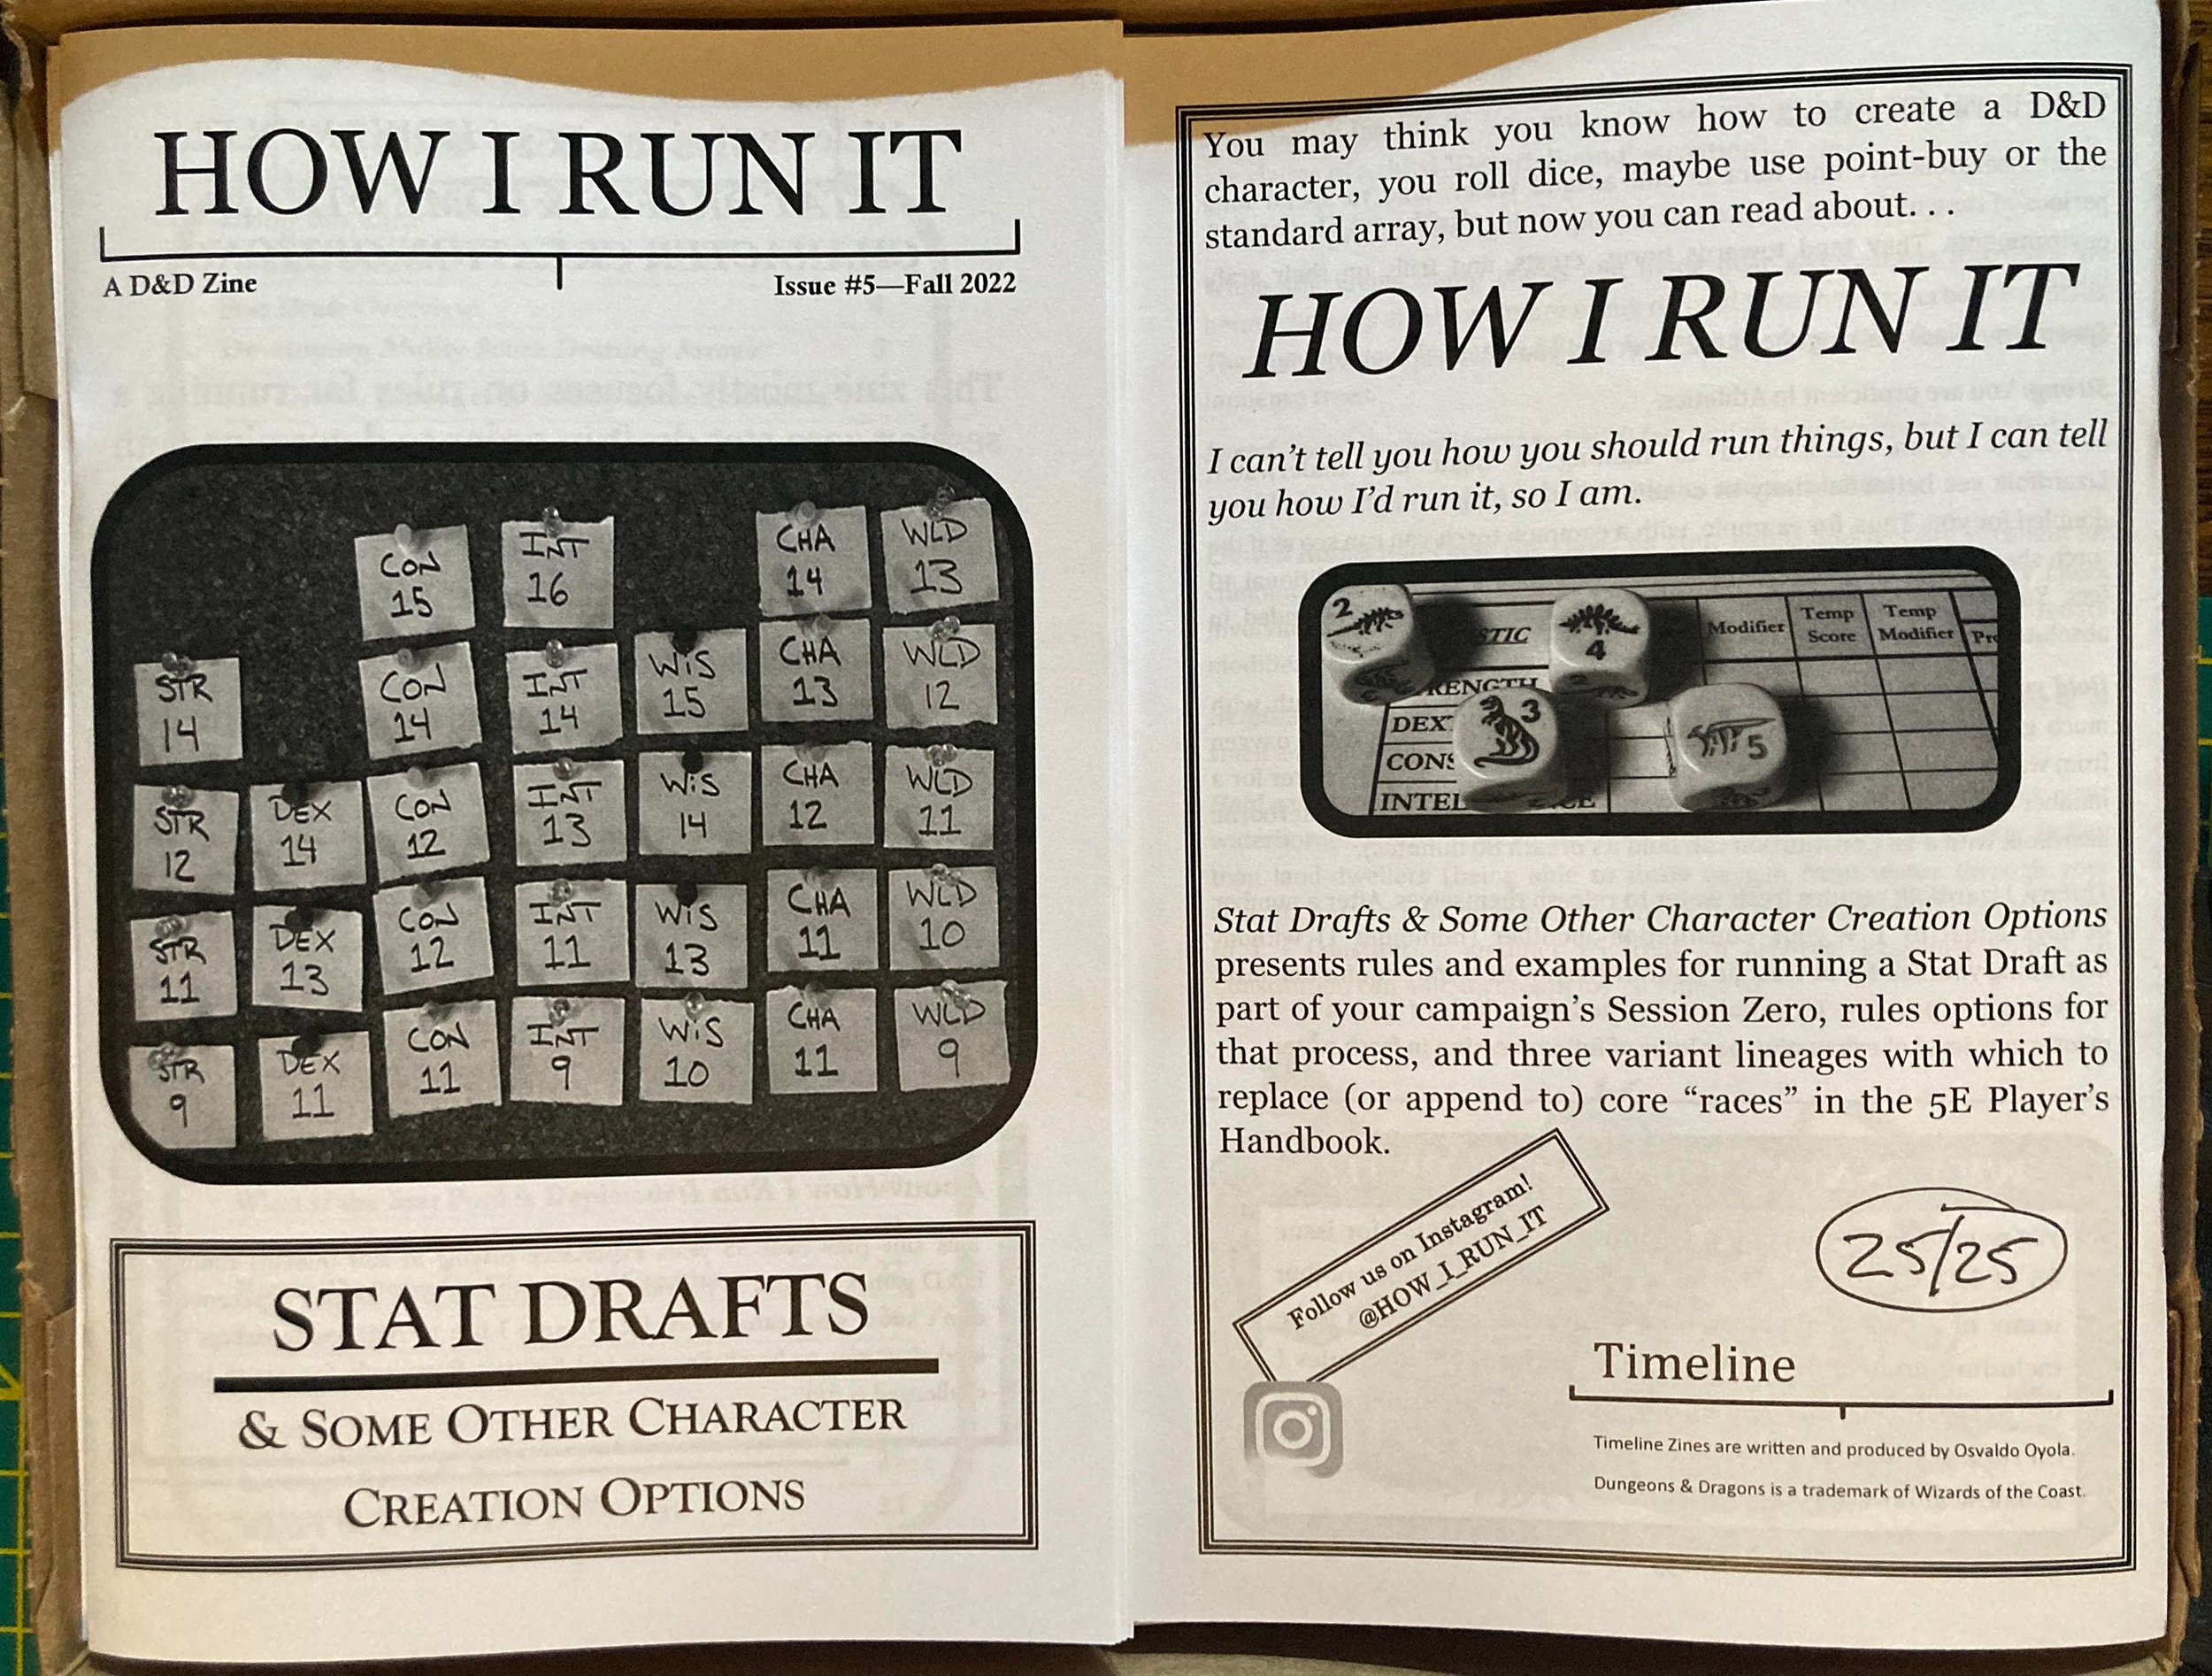 HOW I RUN IT
A D&D Zine
Issue #5—Fall 2022
CON 15
INT 16
CHA 14
WLD 13
STR 14
CON 14
INT 14
WIS 15
CHA 13
WLD 12
STR 12
DEX 14
CON 12
INT 13
WIS 14
CHA 12
WLD 11
STR 11
DEX 13
CON 12
INT 11
WIS 13
CHA 11
WLD 10
STR 9
DEX 11
CON 11
INT 9
WIS 10
CHA 11
WLD 9
STAT DRAFTS
& SOME OTHER CHARACTER
CREATION OPTIONS
You may think you know how to create a D&D
character, you roll dice, maybe use point-buy or the
standard array, but now you can read about. . .
HOW I RUN IT
I can't tell you how you should run things, but I can tell
you how I'd run it, so I am.
2
STIC
4
Modifier
Temp
Score
Temp
Modifier
Pr
RENGTH
DEX
3
5
CONS
INTEL
CE
Stat Drafts & Some Other Character Creation Options
presents rules and examples for running a Stat Draft as
part of your campaign's Session Zero, rules options for
that process, and three variant lineages with which to
replace (or append to) core “races” in the 5E Player's
Handbook.
Follow us on Instagram!
@HOW_I_RUN_IT
25/25
Timeline
Timeline Zines are written and produced by Osvaldo Oyola.
Dungeons & Dragons is a trademark of Wizards of the Coast.